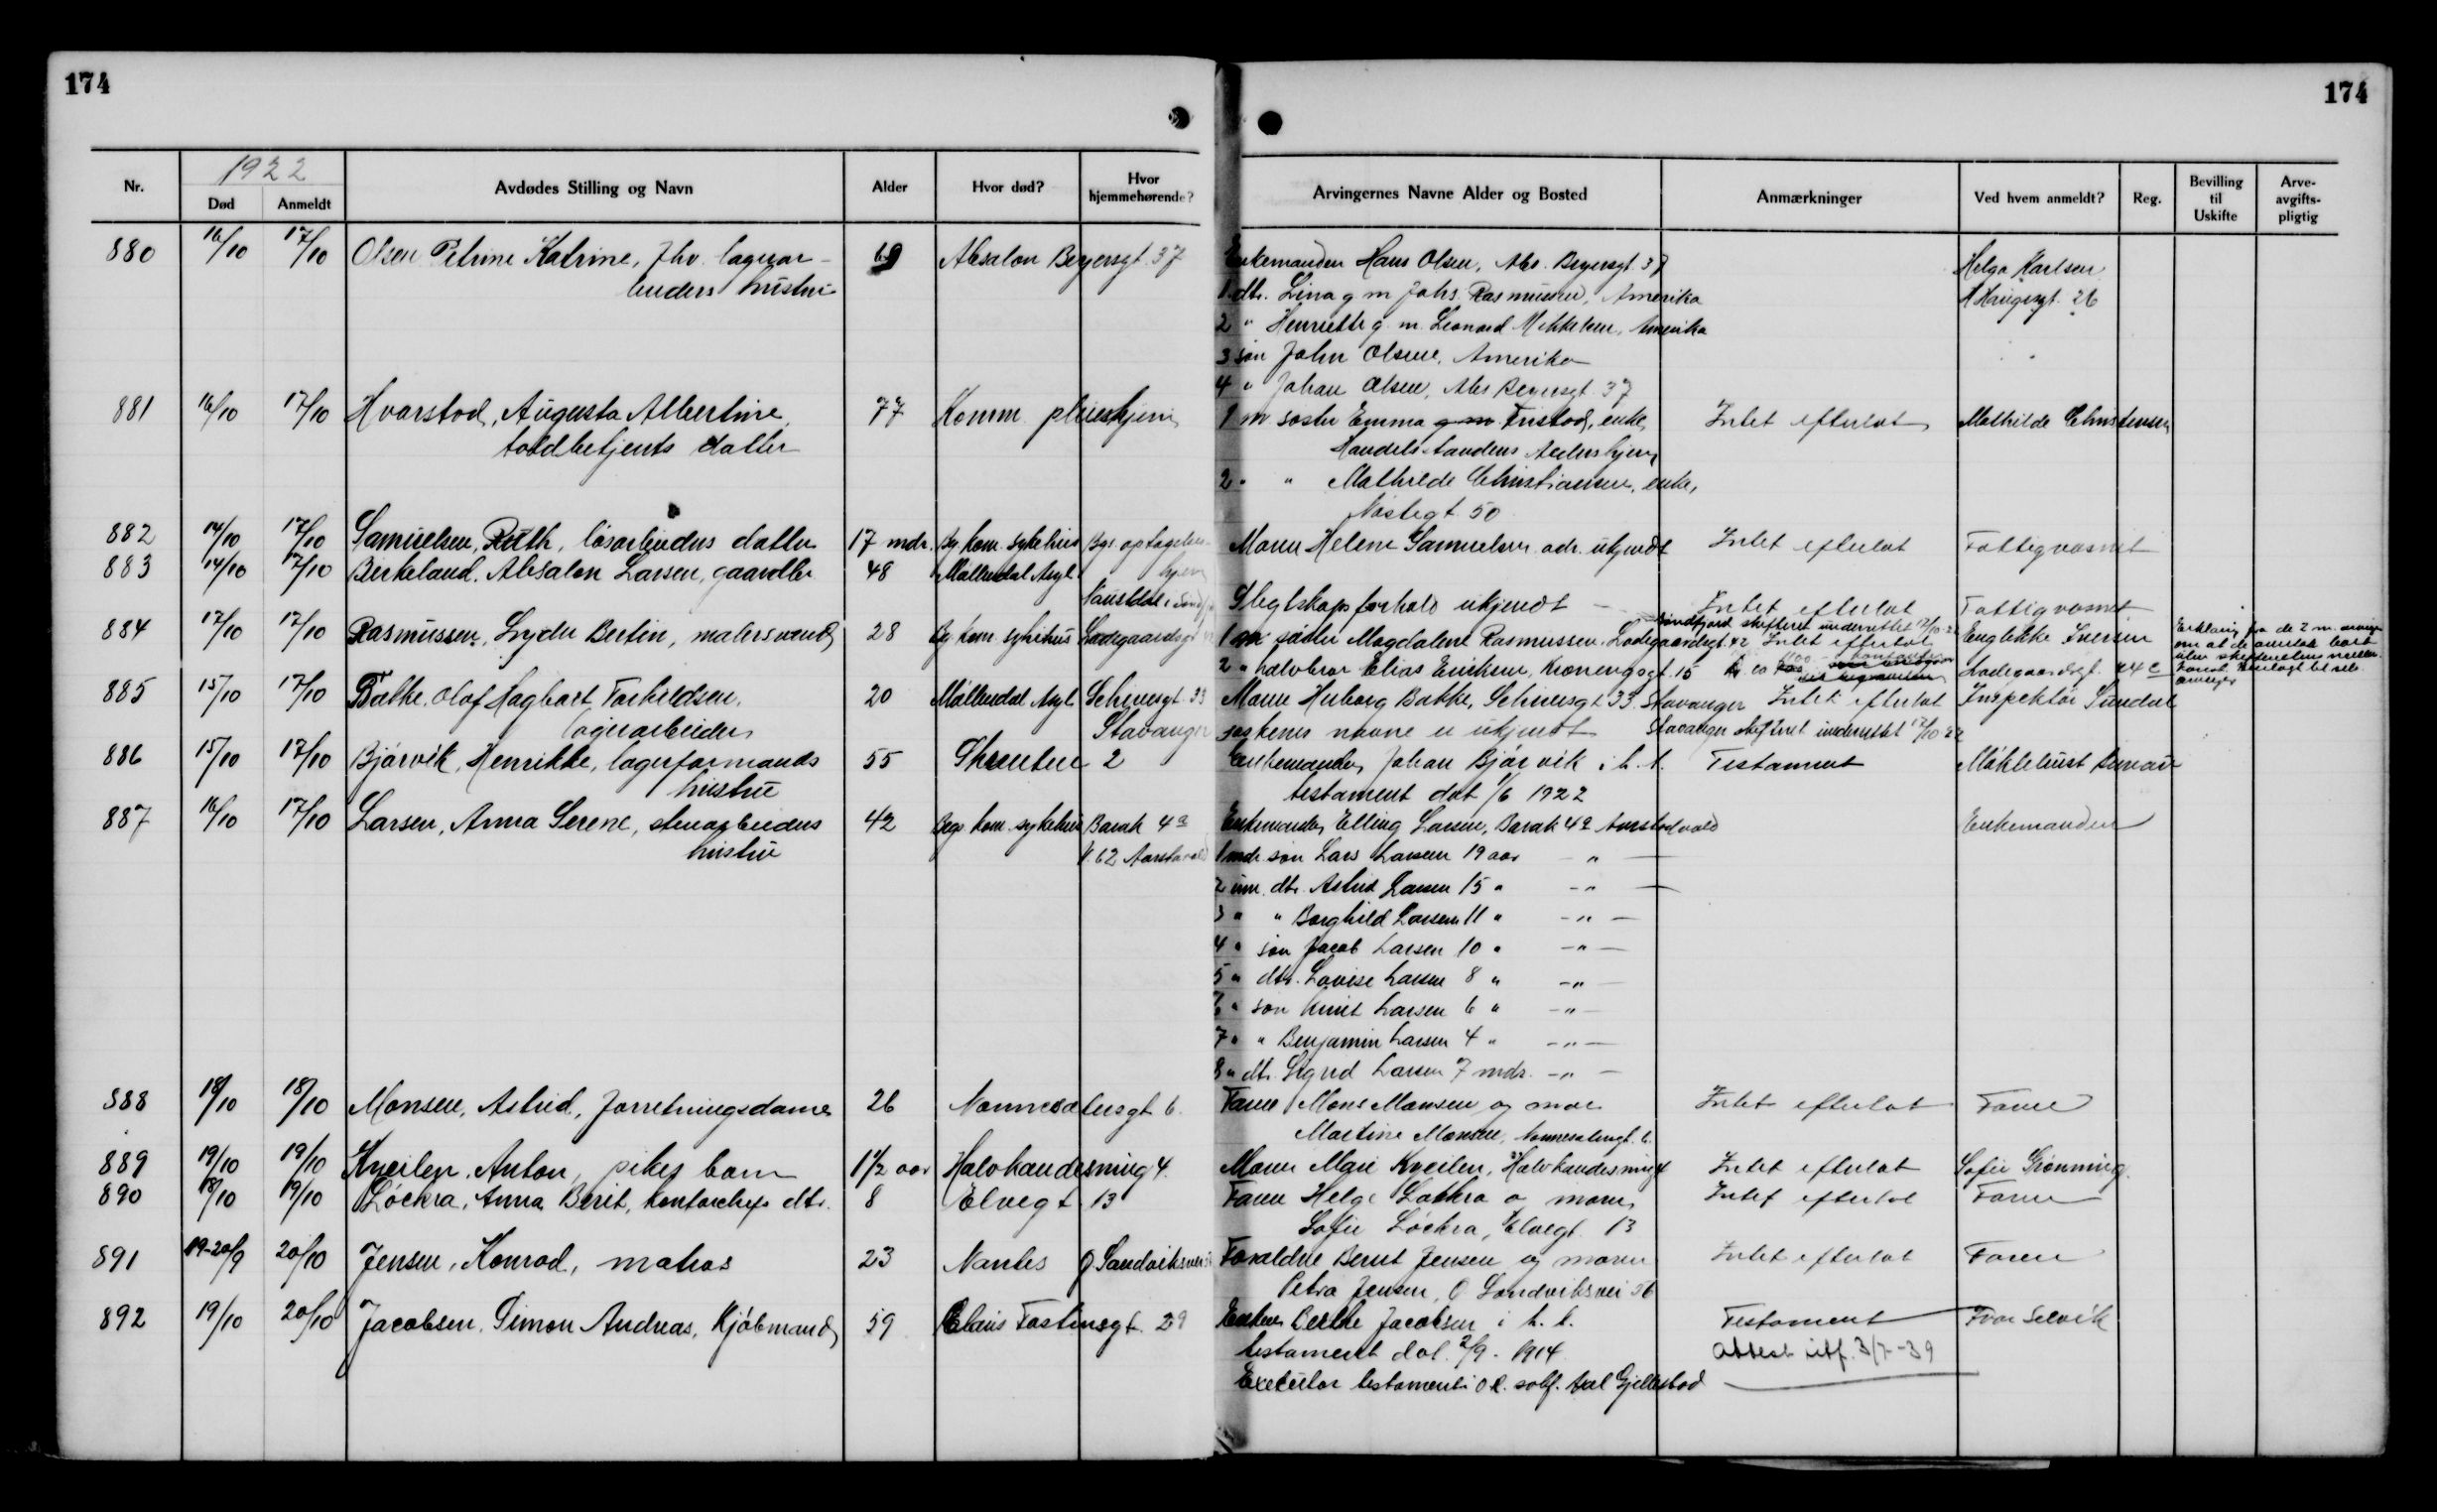 174
174
1922
Nr.
Død
Anmeldt
Avdødes Stilling og Navn
Alder
Hvor død?
Hvor
hjemmehørende?
Arvingernes Navne Alder og Bosted
Anmærkninger
Ved hvem anmeldt?
Reg.
Bevilling
til
Uskifte
Arve-
avgifts-
pligtig
880 16/10 17/10 Olsen Petrine Katrine, fhv. lagerar- 69 Absalon Beyersgt. 37 Enkemanden Hans Olsen, Abs. Beyersgt. 37 Helga Karlsen
beiders hustru 1 dtr. Lina g m Johs. Rasmussen, Amerika H Haugesgt. 26
2 " Henriette g. m. Leonard Mikkelsen, Amerika
3 søn John Olsen, Amerika
4 " Johan Olsen, Abs Beyersgt. 37
881 16/10 17/10 Hvarstad, Augusta Albertine, 77 Komm. pleiehjem 1 m søster Emma g m Fristad, enke, Intet efterlot Mathilde Christensen
toldbetjents datter Handelsstandens Aldershjem
2 " " Mathilde Christiansen, enke,
Nøstegt 50
882 14/10 17/10 Samuelsen, Ruth, løsarbeiders datter 17 mdr. Bg kom. sykehus Bgs. optagelses- Moren Helene Samuelsen adr. ukjendt Intet efterlot Fattigvæsenet
883 14/10 17/10 Berkeland, Absalon Larsen, gaardbr 48 Møllendal Asyl hjem
Naustdal i Søndfj Slegtskapsforhold ukjendt Intet efterlot Fattigvæsenet
Søndfjord skifteret underrettet 17/10-22
884 17/10 17/10 Rasmussen, Lyder Bertin, malersvend 28 Bg kom. sykehus Ladegaardsgt 1 m søster Magdalene Rasmussen, Ladegaardsgt. 42 Intet efterlot Engelikke Iversen
2 " halvbror Elias Eriksen, Kroneng.gt. 15 Ladegaardsgt. 44 c
885 15/10 17/10 Bakke, Olaf Hagbart Torkildsen, 20 Møllendal Asyl Schiwesgt. 33 Moren Huborg Bakke, Schiwesgt 33. Stavanger Intet efterlot Inspektør Sundal
løgerarbeider Stavanger søskenes navne er ukjendt Stavanger skifteret underrettet 17/10-22
886 15/10 17/10 Bjørvik, Henrikke, lagerformands 55 Skrænten 2 Enkemanden Johan Bjørvik i h. t. Testament Møklebust Bureau
hustru testament dat 1/6 1922
887 16/10 17/10 Larsen, Anna Serene, stenarbeiders 42 Bgs kom. sykehus Barak 4a Enkemanden Elling Larsen, Barak 4a Aarstadvold Enkemanden
hustru V. 62 Aarstavold 1 mdr. søn Lars Larsen 19 aar – " –
2 um. dtr. Astrid Larsen 15 " – " –
3 " " Borghild Larsen 11 " – " –
4 " søn Jacob Larsen 10 " – " –
5 " dtr. Lovise Larsen 8 " – " –
6 " søn Knut Larsen 6 " – " –
7 " " Benjamin Larsen 4 " – " –
8 " dtr. Sigred Larsen 7 mdr. – " –
888 18/10 18/10 Monsen, Astrid, forretningsdame 26 Nonnesætersgt 6. Faren Mons Monsen og mor Intet efterlot Faren
Martine Monsen, Nonnesætersgt. 6.
889 19/10 19/10 Kneilen, Anton, pikes barn 1 1/2 aar Halvkandesmug 4. Moren Marie Kneilen, Halvkandesmug 4 Intet efterlot Sofie Grønning
890 18/10 19/10 Løckra, Anna Berit, kontorchefs dtr. 8 Elvegt. 13 Faren Helge Løckra o moren Intet efterlot Faren
Sofie Løckra, Elvegt. 13
891 19-20/9 20/10 Jensen, Konrad, matros 23 Nantes Ø. Sandviksvei 5 Forældre Bernt Jensen og moren Intet efterlot Faren
Petra Jensen, Ø Sandviksvei 56
892 19/10 20/10 Jacobsen, Simon Andreas, Kjøbmand 59 Claus Fastingsgt. 29 Enken Berthe Jacobsen i h. t. Testament Ivar Selvik
testament dat. 2/9 - 1914 Attest utf. 3/7-39
Executor testamenti o.r. sakf. Axel Gjellestad